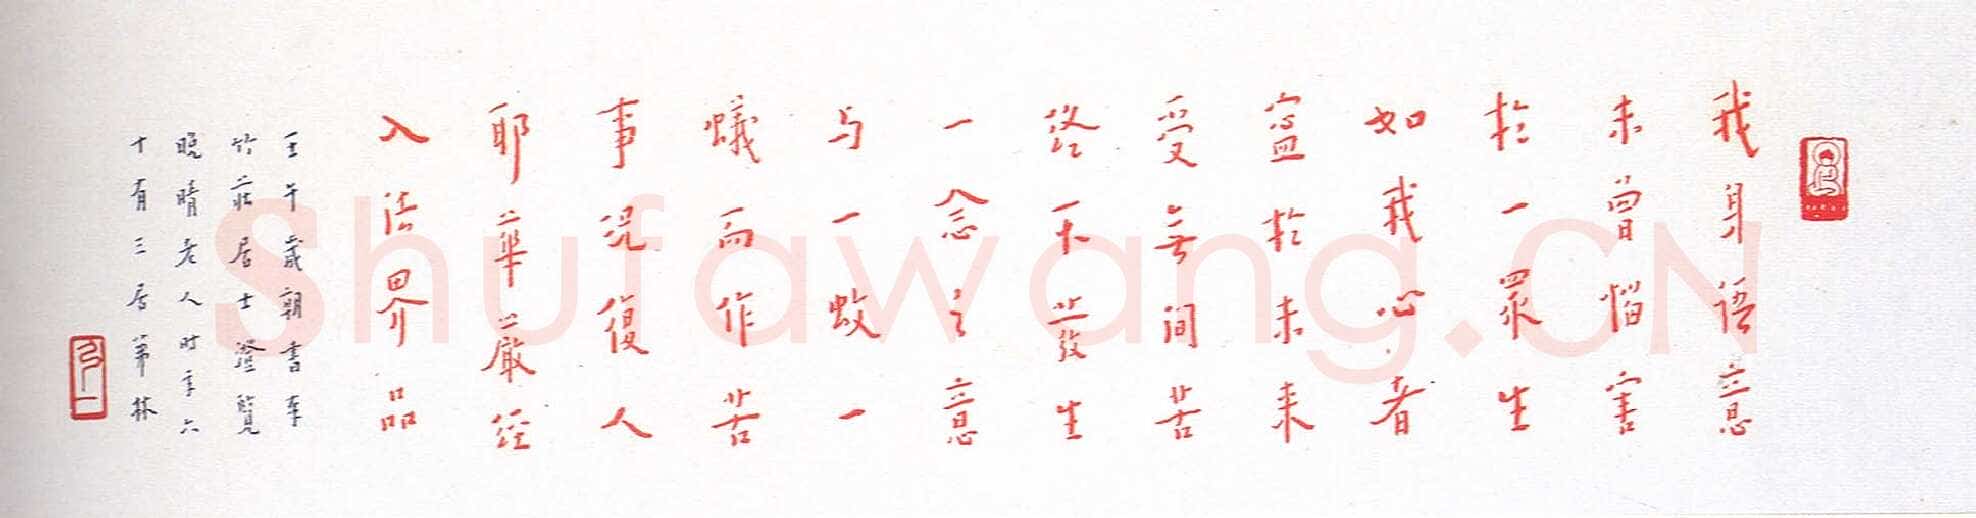 我身語意
未曾惱害
於一眾生
如我心者
寧於未來
受無間苦
終不發生
一念之意
与一蚊一
蟻而作苦
事況復人
耶華嚴經
入法界品
壬午歲朝書奉
竹莊居士澄覽
晚晴老人时年六
十有三居第林
弘一
Shufawang.CN